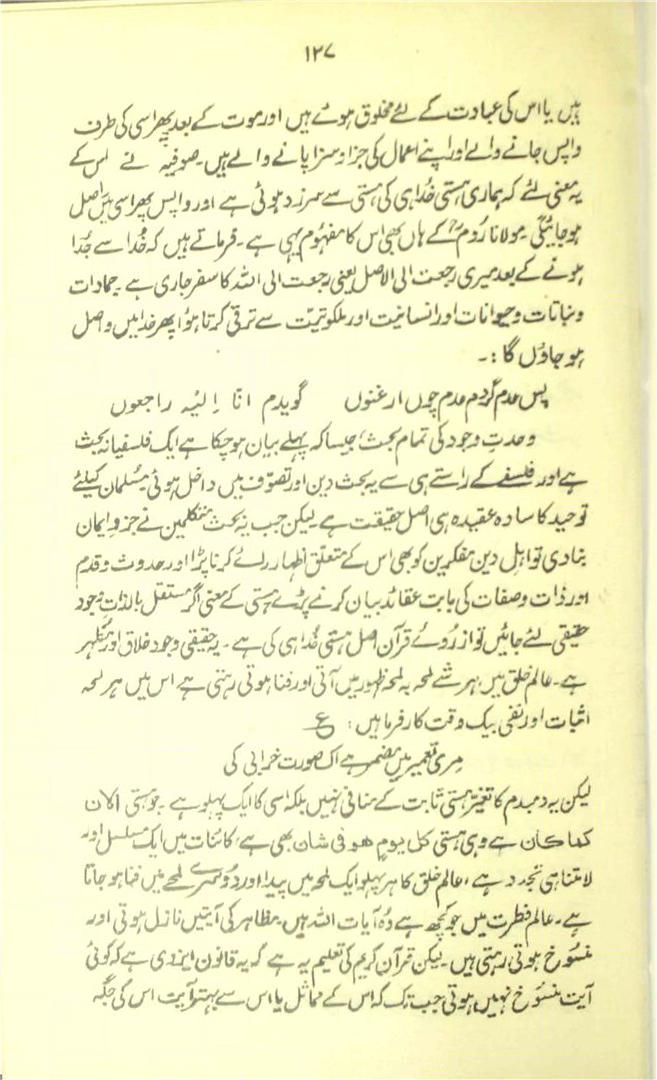 ۱۳۷
ہیں یا اس کی عبادت کے لئے مخلوق ہوئے ہیں اور موت کے بعد پھر اسی کی طرف
واپس جانے والے اور اپنے اعمال کی جزا و سزا پانے والے ہیں۔ صوفیہ نے اس کے
یہ معنی لئے کہ ہماری ہستی خدا ہی کی ہستی سے سرزد ہوئی ہے اور واپس پھر اسی میں واصل
ہو جائیگی۔ مولانا روم کے ہاں بھی اس کا مفہوم یہی ہے۔ فرماتے ہیں کہ خُدا سے جُدا
ہونے کے بعد میری رجعت الی الاصل یعنی رجعت الی اللہ کا سفر جاری ہے۔ جمادات
و نباتات و حیوانات اور انسانیت اور ملکوتیّت سے ترقی کرتا ہوا پھر خدا میں واصل
ہو جاوٴں گا :۔
پس عدم گردم عدم چوں ارغنوں گویدم انا اِلیہ راجعوں
وحدتِ وجود کی تمام بحث جیسا کہ پہلے بیان ہو چکا ہے ایک فلسفیانہ بحث
ہے اور فلسفے کے راستے ہی سے یہ بحث دین اور تصوّف میں داخل ہوئی مسُلمان کیلئے
توحید کا سادہ عقیدہ ہی اصل حقیقت ہے لیکن جب یہ بحث متکلمین نے جزوِ ایمان
بنا دی تو اہلِ دین مفکرین کو بھی اس کے متعلق اظہار رائے کرنا پڑا اور حدوث و قدم
اور ذات و صفات کی بابت عقائد بیان کرنے پڑے ہستی کے معنی اگر مستقل بالذات وجود
حقیقی لئے جائیں تو از روُئے قرآن اصل ہستی خُدا ہی کی ہے۔ یہ حقیقی وجود خلاق اور مُظہر
ہے۔ عالم خلق میں ہر شے لمحہ بہ لمحہ ظہور میں آتی اور فنا ہوتی رہتی ہے اس میں ہر لمحہ
اثبات اور نفی بیک وقت کارفرما ہیں : ع
مِری تعمیر میں مضمر ہے اک صُورت خرابی کی
لیکن یہ دمبدم کا تغیّر ہستی ثابت کے منافی نہیں بلکہ اسی کا ایک پہلو ہے۔ جو ہستی الآن
کما کان ہے وہی ہستی کل یومٍ ھو فی شان بھی ہے، کائنات میں ایک مسلسل اور
لامتناہی تجدد ہے، عالمِ خلق کا ہر پہلو ایک لمحہ میں پیدا اور دُوسرے لمحے میں فنا ہو جاتا
ہے۔ عالم فطرت میں جو کچھ ہے وُہ آیات اللہ ہیں۔ مظاہر کی آیتیں نازل ہوتی اور
منسُوخ ہوتی رہتی ہیں۔ لیکن قرآن کریم کی تعلیم یہ ہے کہ یہ قانون ایزدی ہے کہ کوئی
آیت منسُوخ نہیں ہوتی جب تک کہ اس کے مماثل یا اس سے بہتر آیت اس کی جگہ